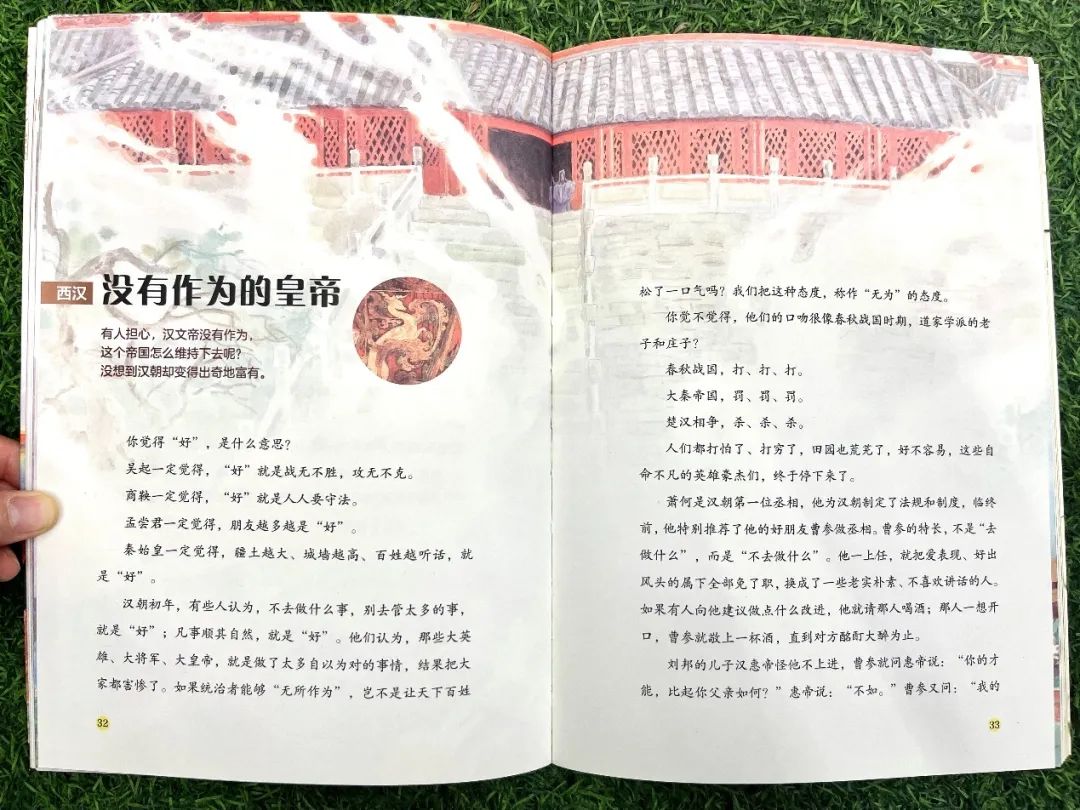 西汉
没有作为的皇帝
有人担心，汉文帝没有作为，
这个帝国怎么维持下去呢？
没想到汉朝却变得出奇地富有。
你觉得“好”，是什么意思？
吴起一定觉得，“好”就是战无不胜，攻无不克。
商鞅一定觉得，“好”就是人人要守法。
孟尝君一定觉得，朋友越多越是“好”。
秦始皇一定觉得，疆土越大、城墙越高、百姓越听话，就
是“好”。
汉朝初年，有些人认为，不去做什么事，别去管太多的事，
就是“好”；凡事顺其自然，就是“好”。他们认为，那些大英
雄、大将军、大皇帝，就是做了太多自以为对的事情，结果把大
家都害惨了。如果统治者能够“无所作为”，岂不是让天下百姓
32
松了一口气吗？我们把这种态度，称作“无为”的态度。
你觉不觉得，他们的口吻很像春秋战国时期，道家学派的老
子和庄子？
春秋战国，打、打、打。
大秦帝国，罚、罚、罚。
楚汉相争，杀、杀、杀。
人们都打怕了、打穷了，田园也荒芜了，好不容易，这些自
命不凡的英雄豪杰们，终于停下来了。
萧何是汉朝第一位丞相，他为汉朝制定了法规和制度，临终
前，他特别推荐了他的好朋友曹参做丞相。曹参的特长，不是“去
做什么”，而是“不去做什么”。他一上任，就把爱表现、好出
风头的属下全部免了职，换成了一些老实朴素、不喜欢讲话的人。
如果有人向他建议做点什么改进，他就请那人喝酒；那人一想开
口，曹参就敬上一杯酒，直到对方酩酊大醉为止。
刘邦的儿子汉惠帝怪他不上进，曹参就问惠帝说：“你的才
能，比起你父亲如何？”惠帝说：“不如。”曹参又问：“我的
33